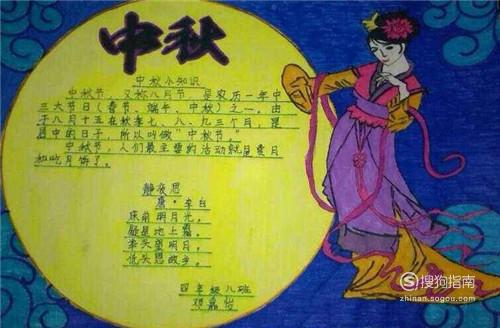 中秋
中秋小知识
中秋节，又称八月节，是农历一年中
三大节日（春节、端午、中秋）之一。由
于八月十五在秋季七、八、九三个月，是
居中的日子，所以叫做“中秋节”。
中秋节，人们最主要的活动就是赏月
和吃月饼了。
静夜思
唐·李白
床前明月光，
疑是地上霜。
举头望明月，
低头思故乡。
四年级八班
嘉
搜狗指南
zhinan.sogou.com